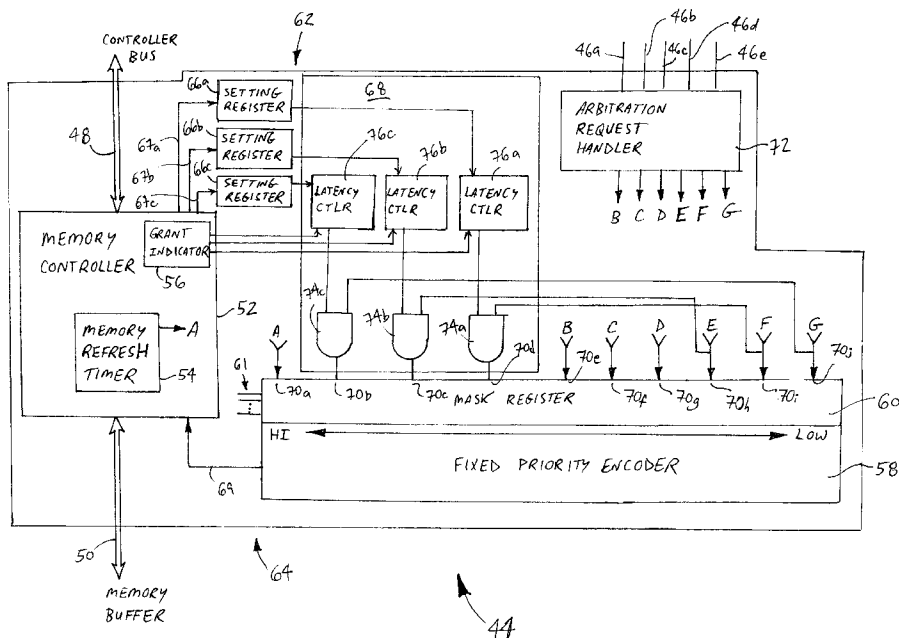 CONTROLLER
BUS
62
46a
46b
46c
46d
46e
66a
SETTING
REGISTER
68
66b
SETTING
REGISTER
48
67a
67b
67c
66c
SETTING
REGISTER
76c
76b
76a
LATENCY
CTLR
LATENCY
CTLR
LATENCY
CTLR
ARBITRATION
REQUEST
HANDLER
72
B C D E F G
MEMORY
CONTROLLER
GRANT
INDICATOR
56
52
MEMORY
REFRESH
TIMER
A
54
74c
74b
74a
A
B C D E F G
61
70a
70b
70c
70d
70e
70f
70g
70h
70i
70j
MASK REGISTER
60
HI
LOW
FIXED PRIORITY ENCODER
58
69
50
64
MEMORY
BUFFER
44